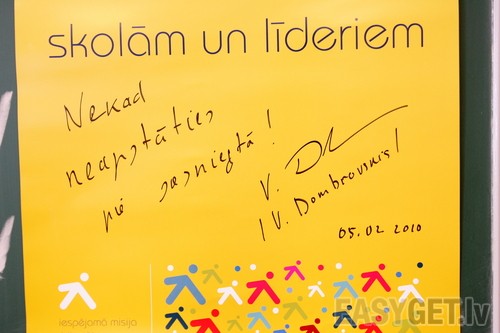 skolām un līderiem
Nekad
neapstāties
pie sasniegtā!
V. D
/V. Dombrovskis/
05.02 2010
iespējamā misija
EASYGET.lv